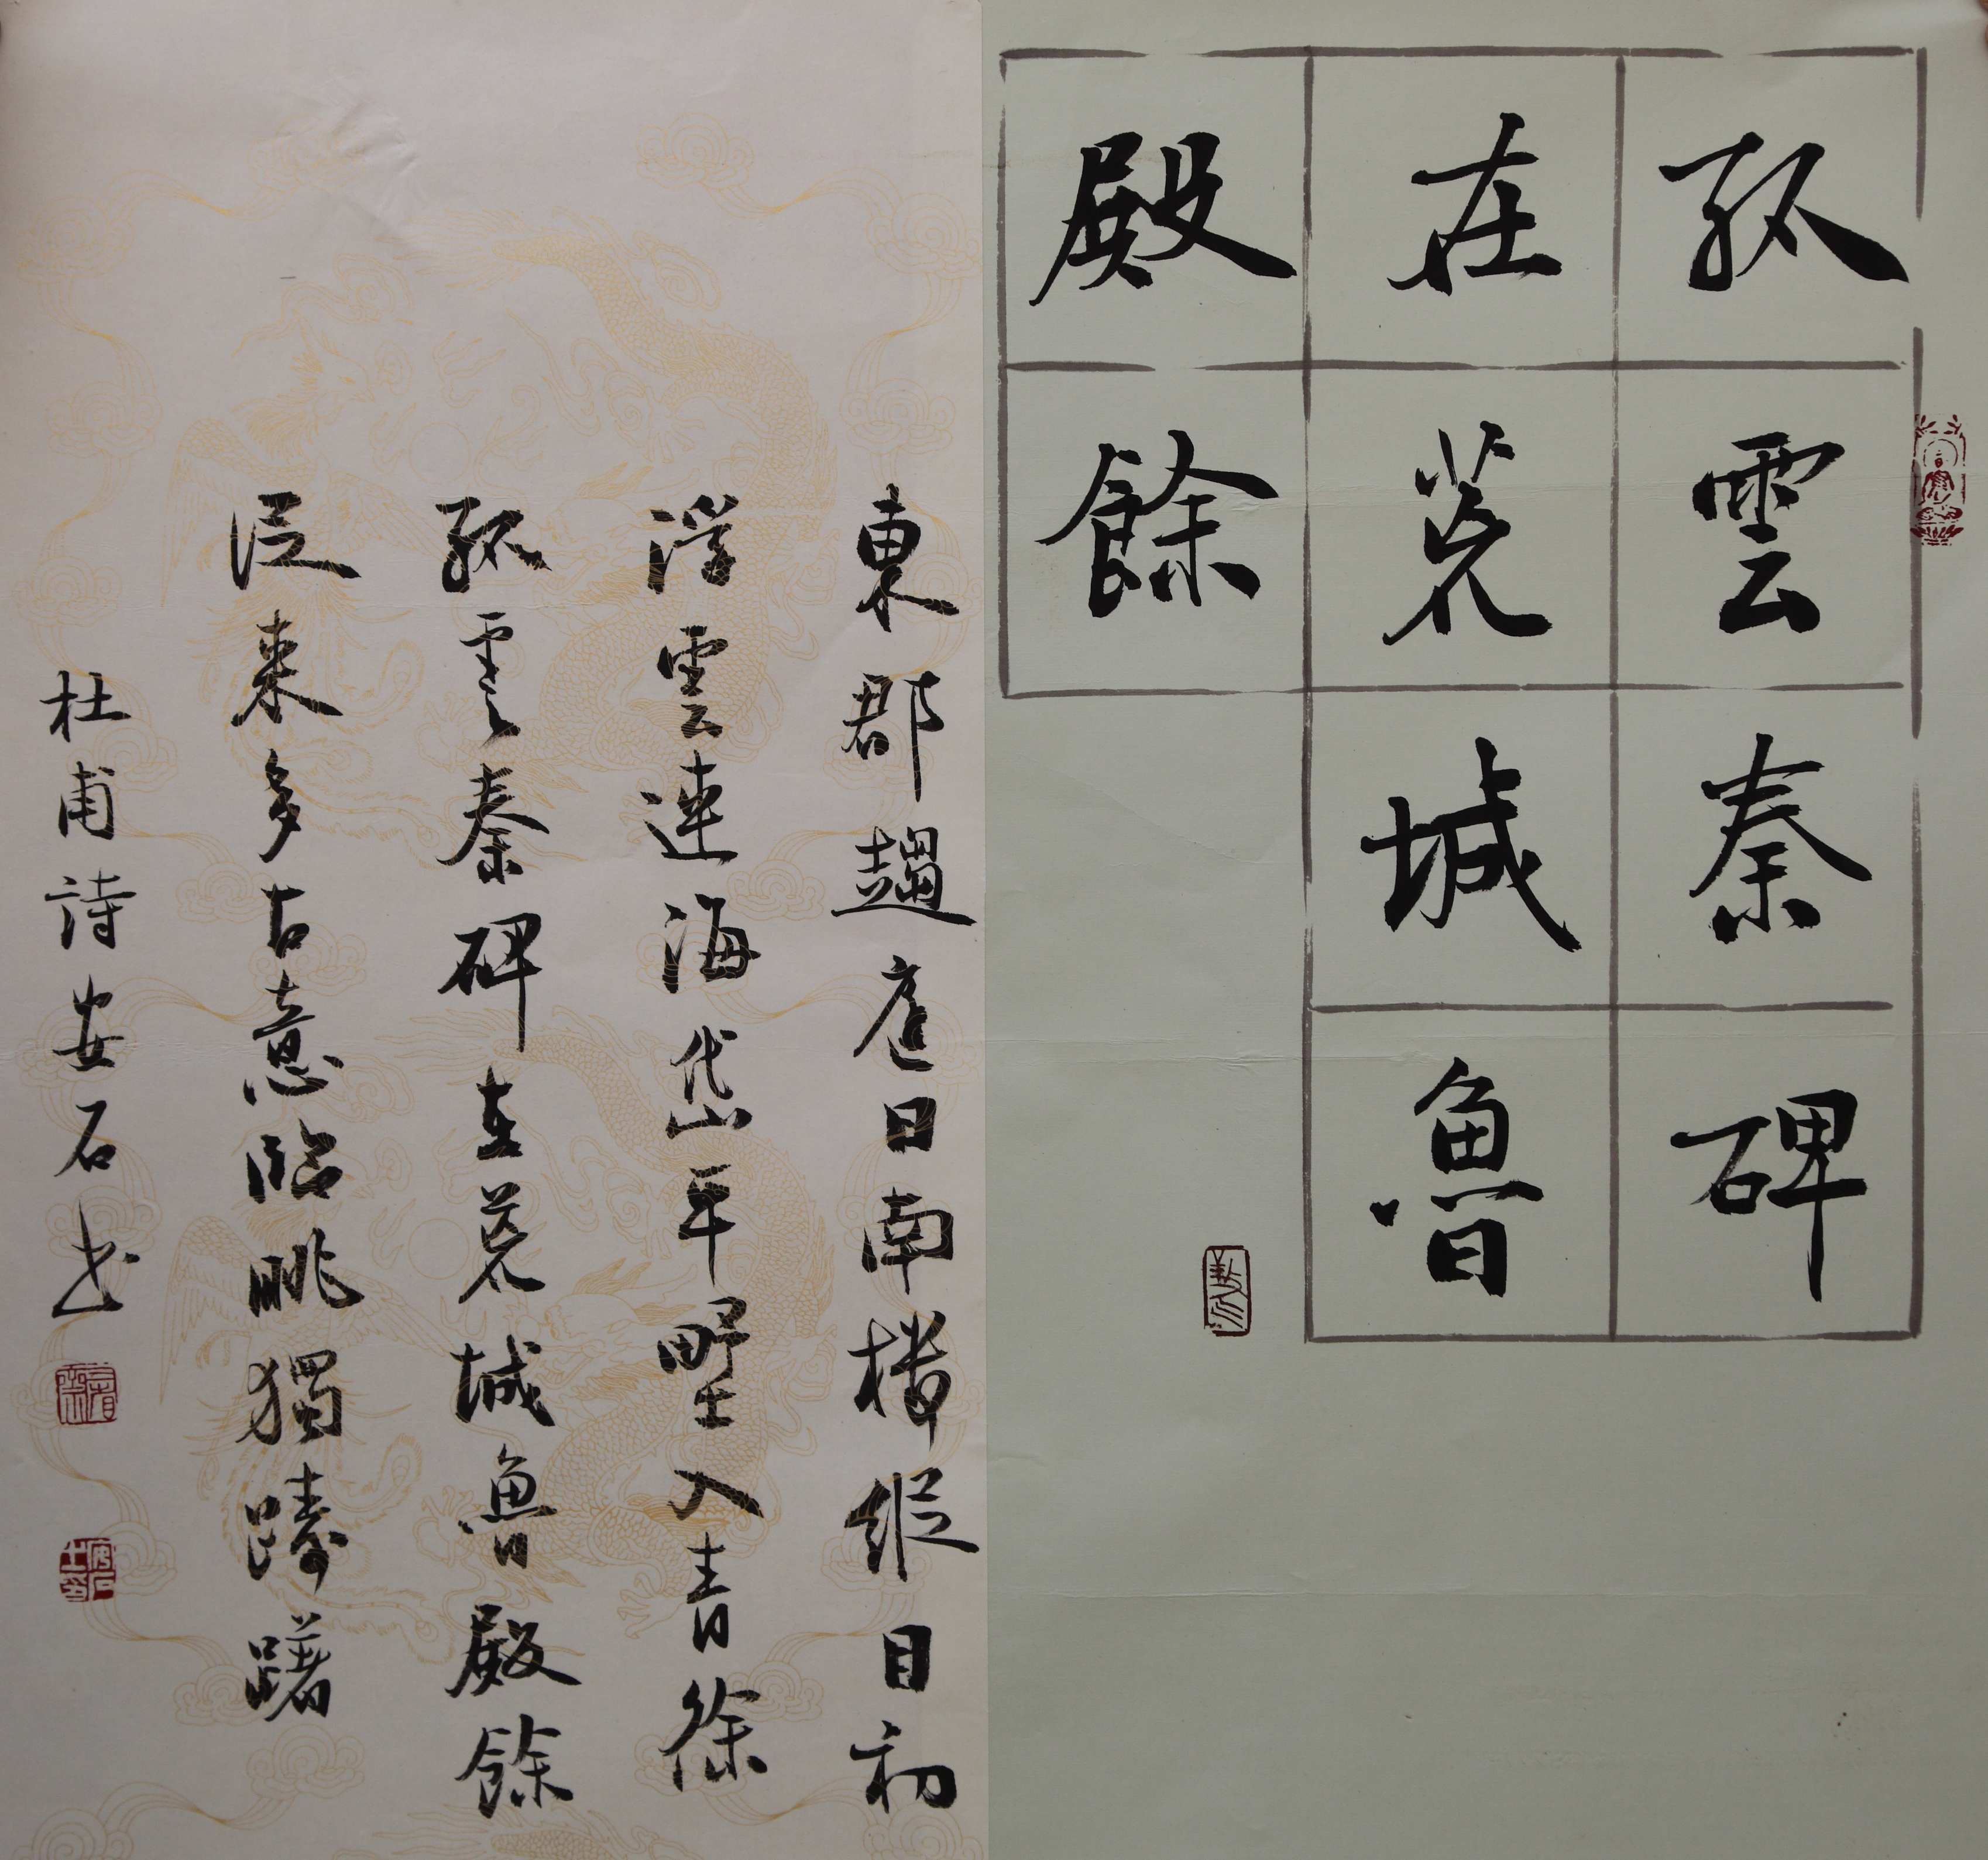 孤雲秦碑
在荒城魯
殿餘
東郡趨庭日南樓縱目初
浮雲連海岱平野入青徐
孤雲秦碑在荒城魯殿餘
從來多古意臨眺獨躊躇
杜甫詩安石书